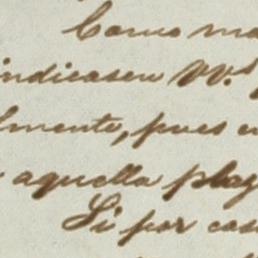 Como ma
indicasen VV.s
lmente, pues e
aquella plaz
Si por cas